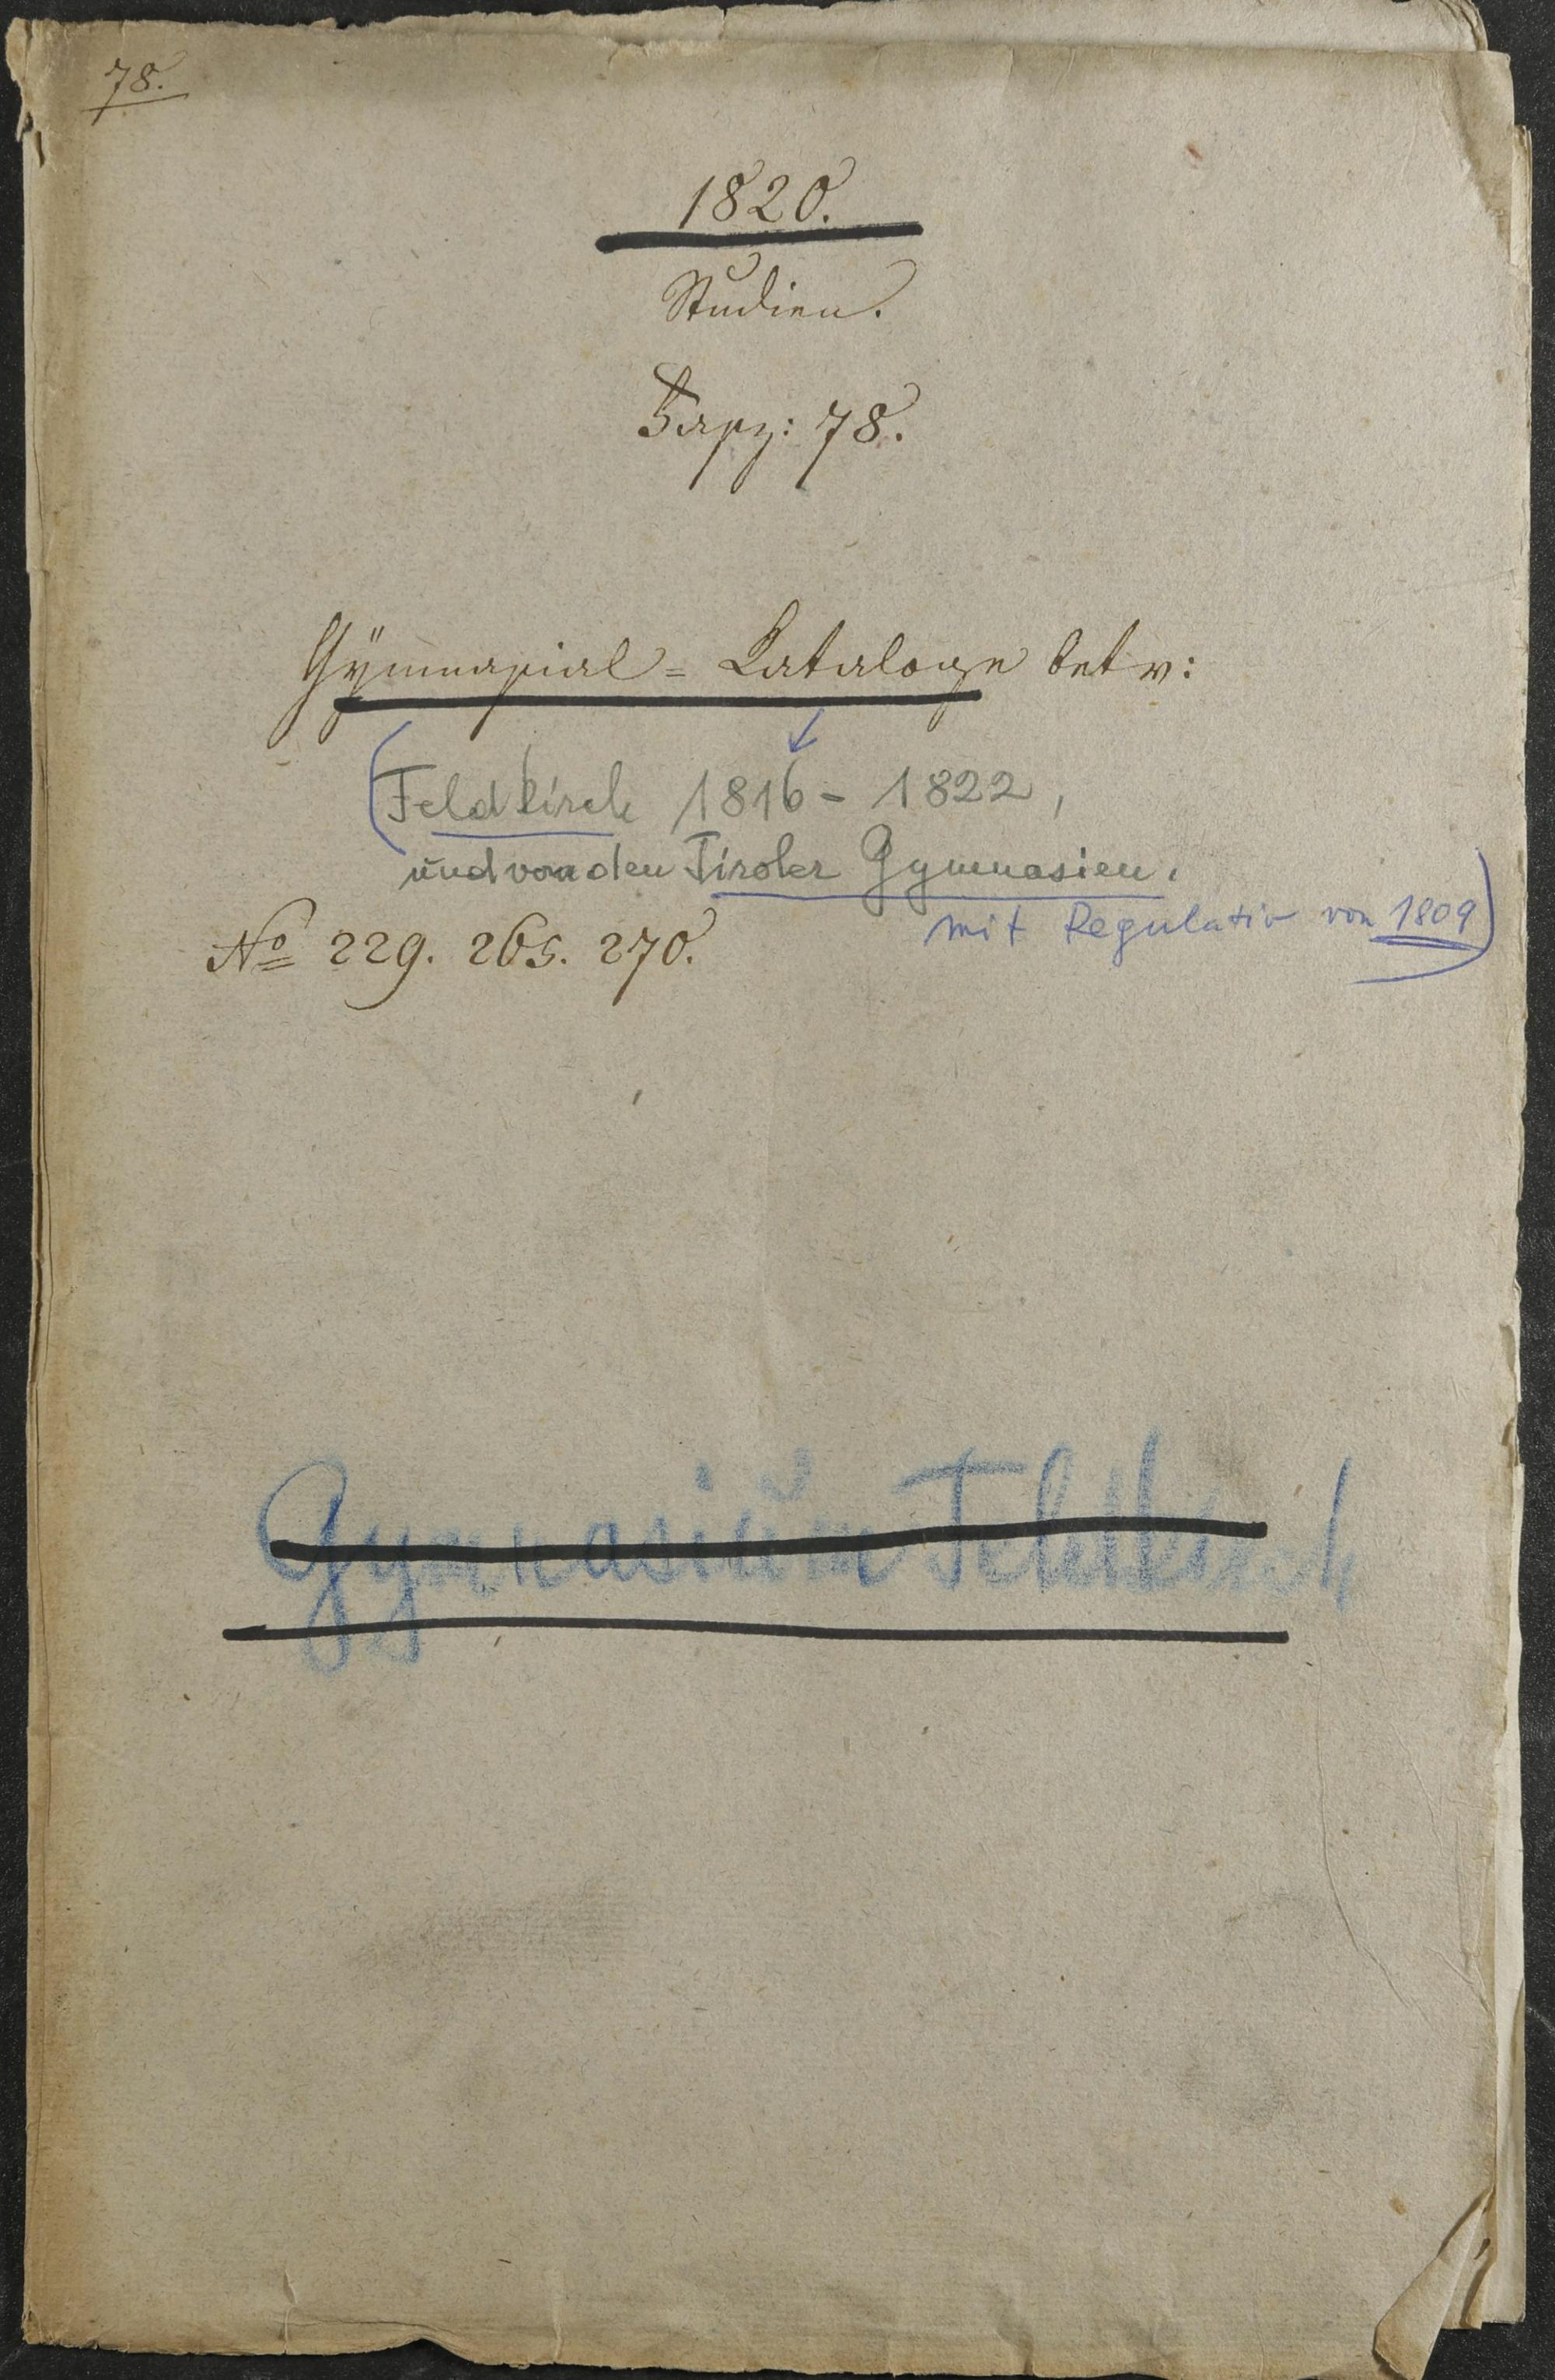 78.
1820.
Studien.
Fasz: 78.
Gÿmnasial = Cataloge betr:
(Feldkirch 1816 - 1822,
und von den Tiroler Gymnasien.
mit Regulativ von 1809)
No 229. 265. 270.
Gymnasium Feldkirch